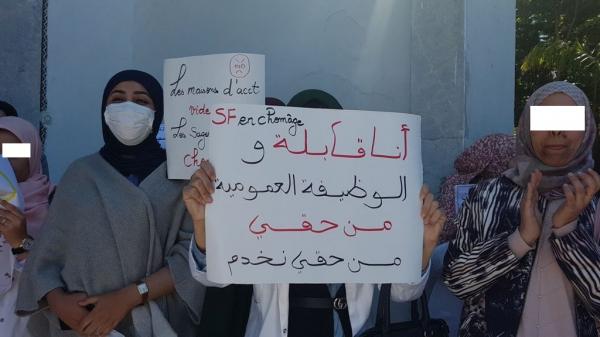 Les maisons d'acct
vide
Les Sage
SF en chomâge
أنا قابلة و
الوظيفة العمومية
من حقي
من حقي نخدم